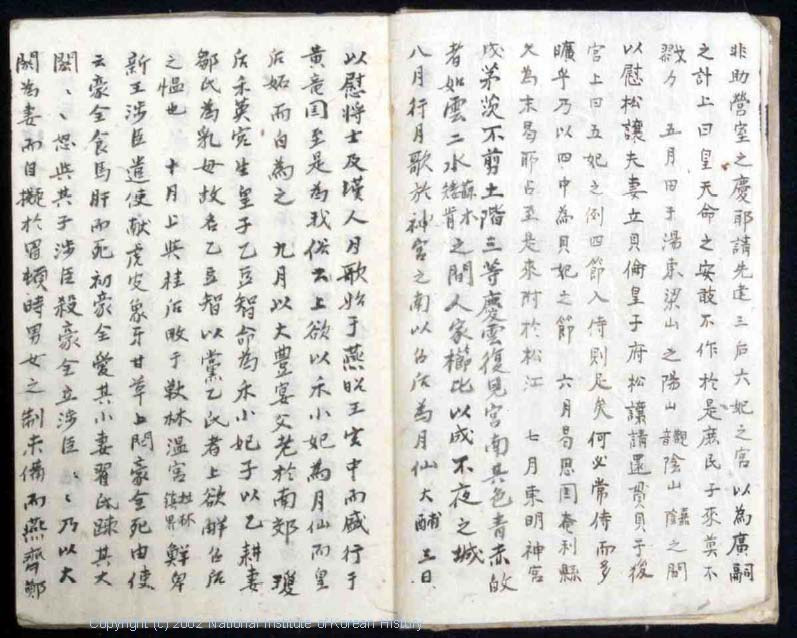 非助營室之慶耶請先建三后六妃之宮以為廣嗣
之計上曰皇天命之安敢不作於是庶民子來莫不
五月田于湯東梁山之陽山觀陰山之間
以慰松讓夫妻立貝倫皇子府松讓請還貫貝子後
宮上曰五妃之例四節入侍則足矣何必常侍而多
曠乎乃以四中為貝妃之節 六月曷思国奄利縣
久為末曷耶占至是來附於松江 七月東明神宮
成茅茨不剪土階三等慶雲復見宮南其色青赤
者如雲二水之間人家櫛比以成不夜之城
八月行月歌於神宮之南以后為月仙大酺三日
以慰將士及人月歌始于燕昭王宮中而盛行于
黄竜国至是為我俗云上欲以禾小妃為月仙而皇
后妬而自為之 九月以大豊宴父老於南郊 瓊
后禾英宮生皇子乙豆智命為禾小妃子以乙耕妻
鄒氏為乳母故名乙豆智以黨乙氏者上欲解后
之慍也 十月上與桂后畋于林温宮 鮮卑
新王涉臣遣使献虎皮象牙甘草上問豪全死由使
云豪全食馬肝而死初豪全愛其小妻翟氏踈其大
閼、、怨與其子涉臣殺豪全立涉臣、、乃以大
閼為妻而自擬於冒頓時男女之制未備而燕齊鄭
Copyright (c) 2002 National Institute of Korean History